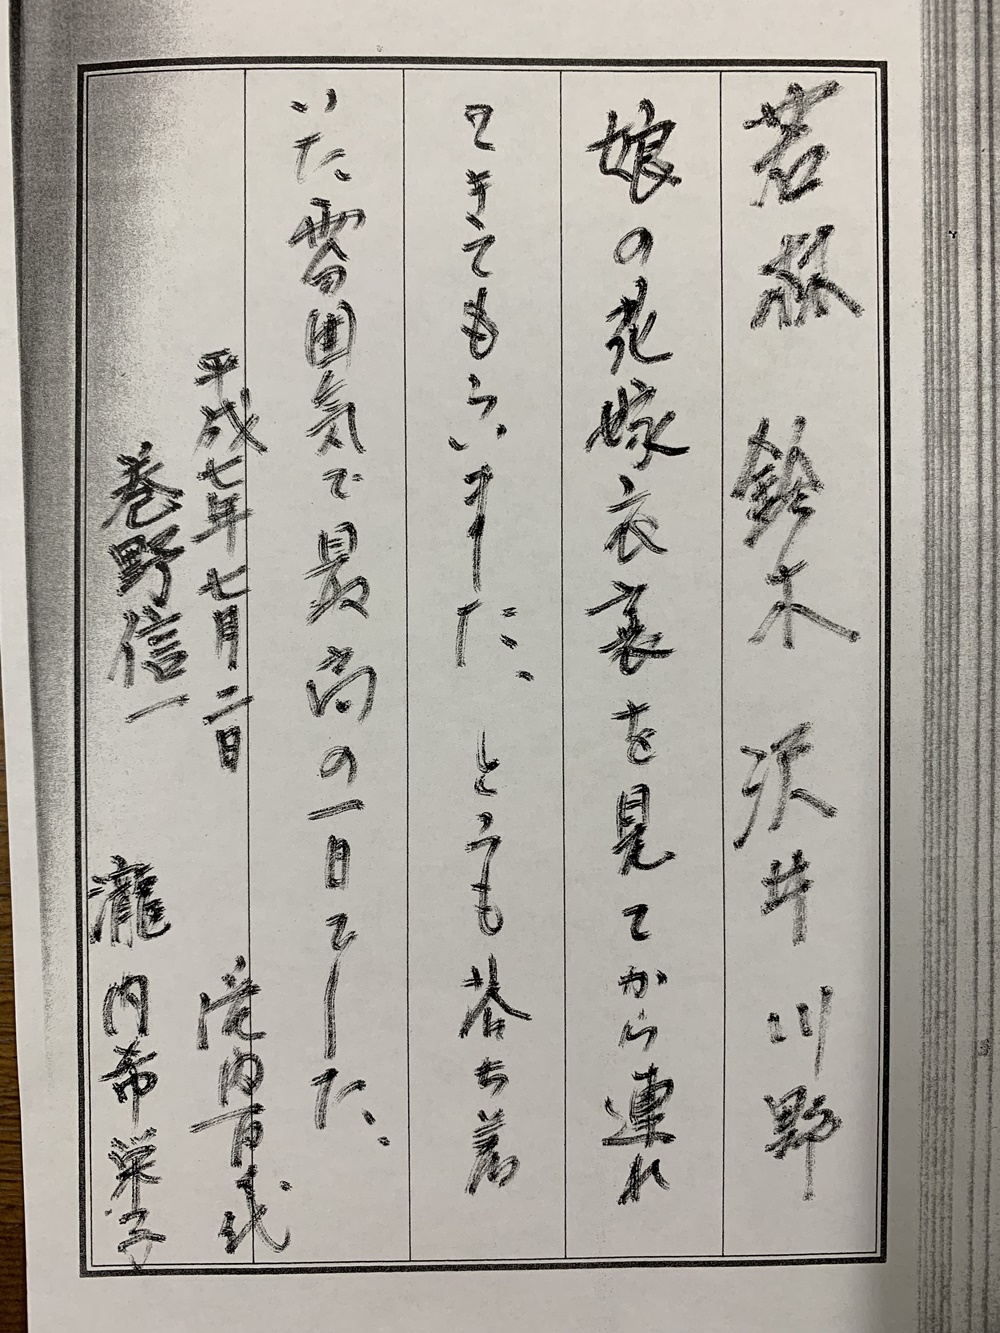 若林 鈴木 沢井 川野
娘の花嫁衣裳を見てから連れ
てきてもらいました、とても落ち着
いた雰囲気で最高の一日でした、
平成七年七月二日
巻野信一
滝内百代
瀧内希栄子